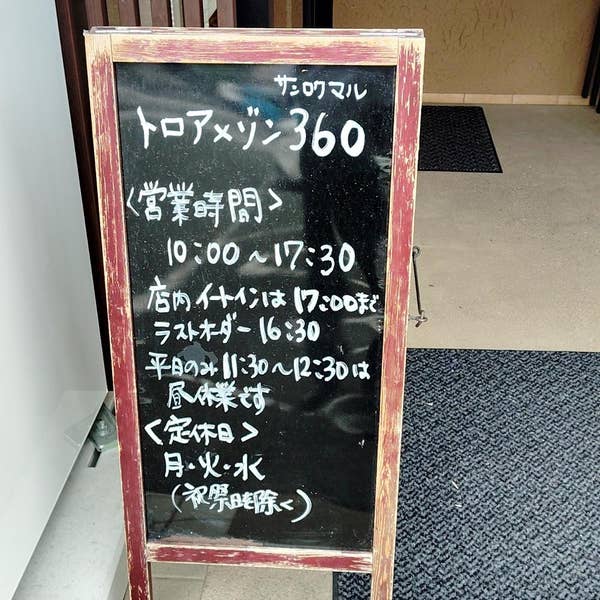 サンロクマル
トロアメゾン360
<営業時間>
10:00～17:30
店内イートインは17:00まで
ラストオーダー16:30
平日のみ11:30～12:30は
昼休業です
<定休日>
月・火・水
(祝祭時除く)